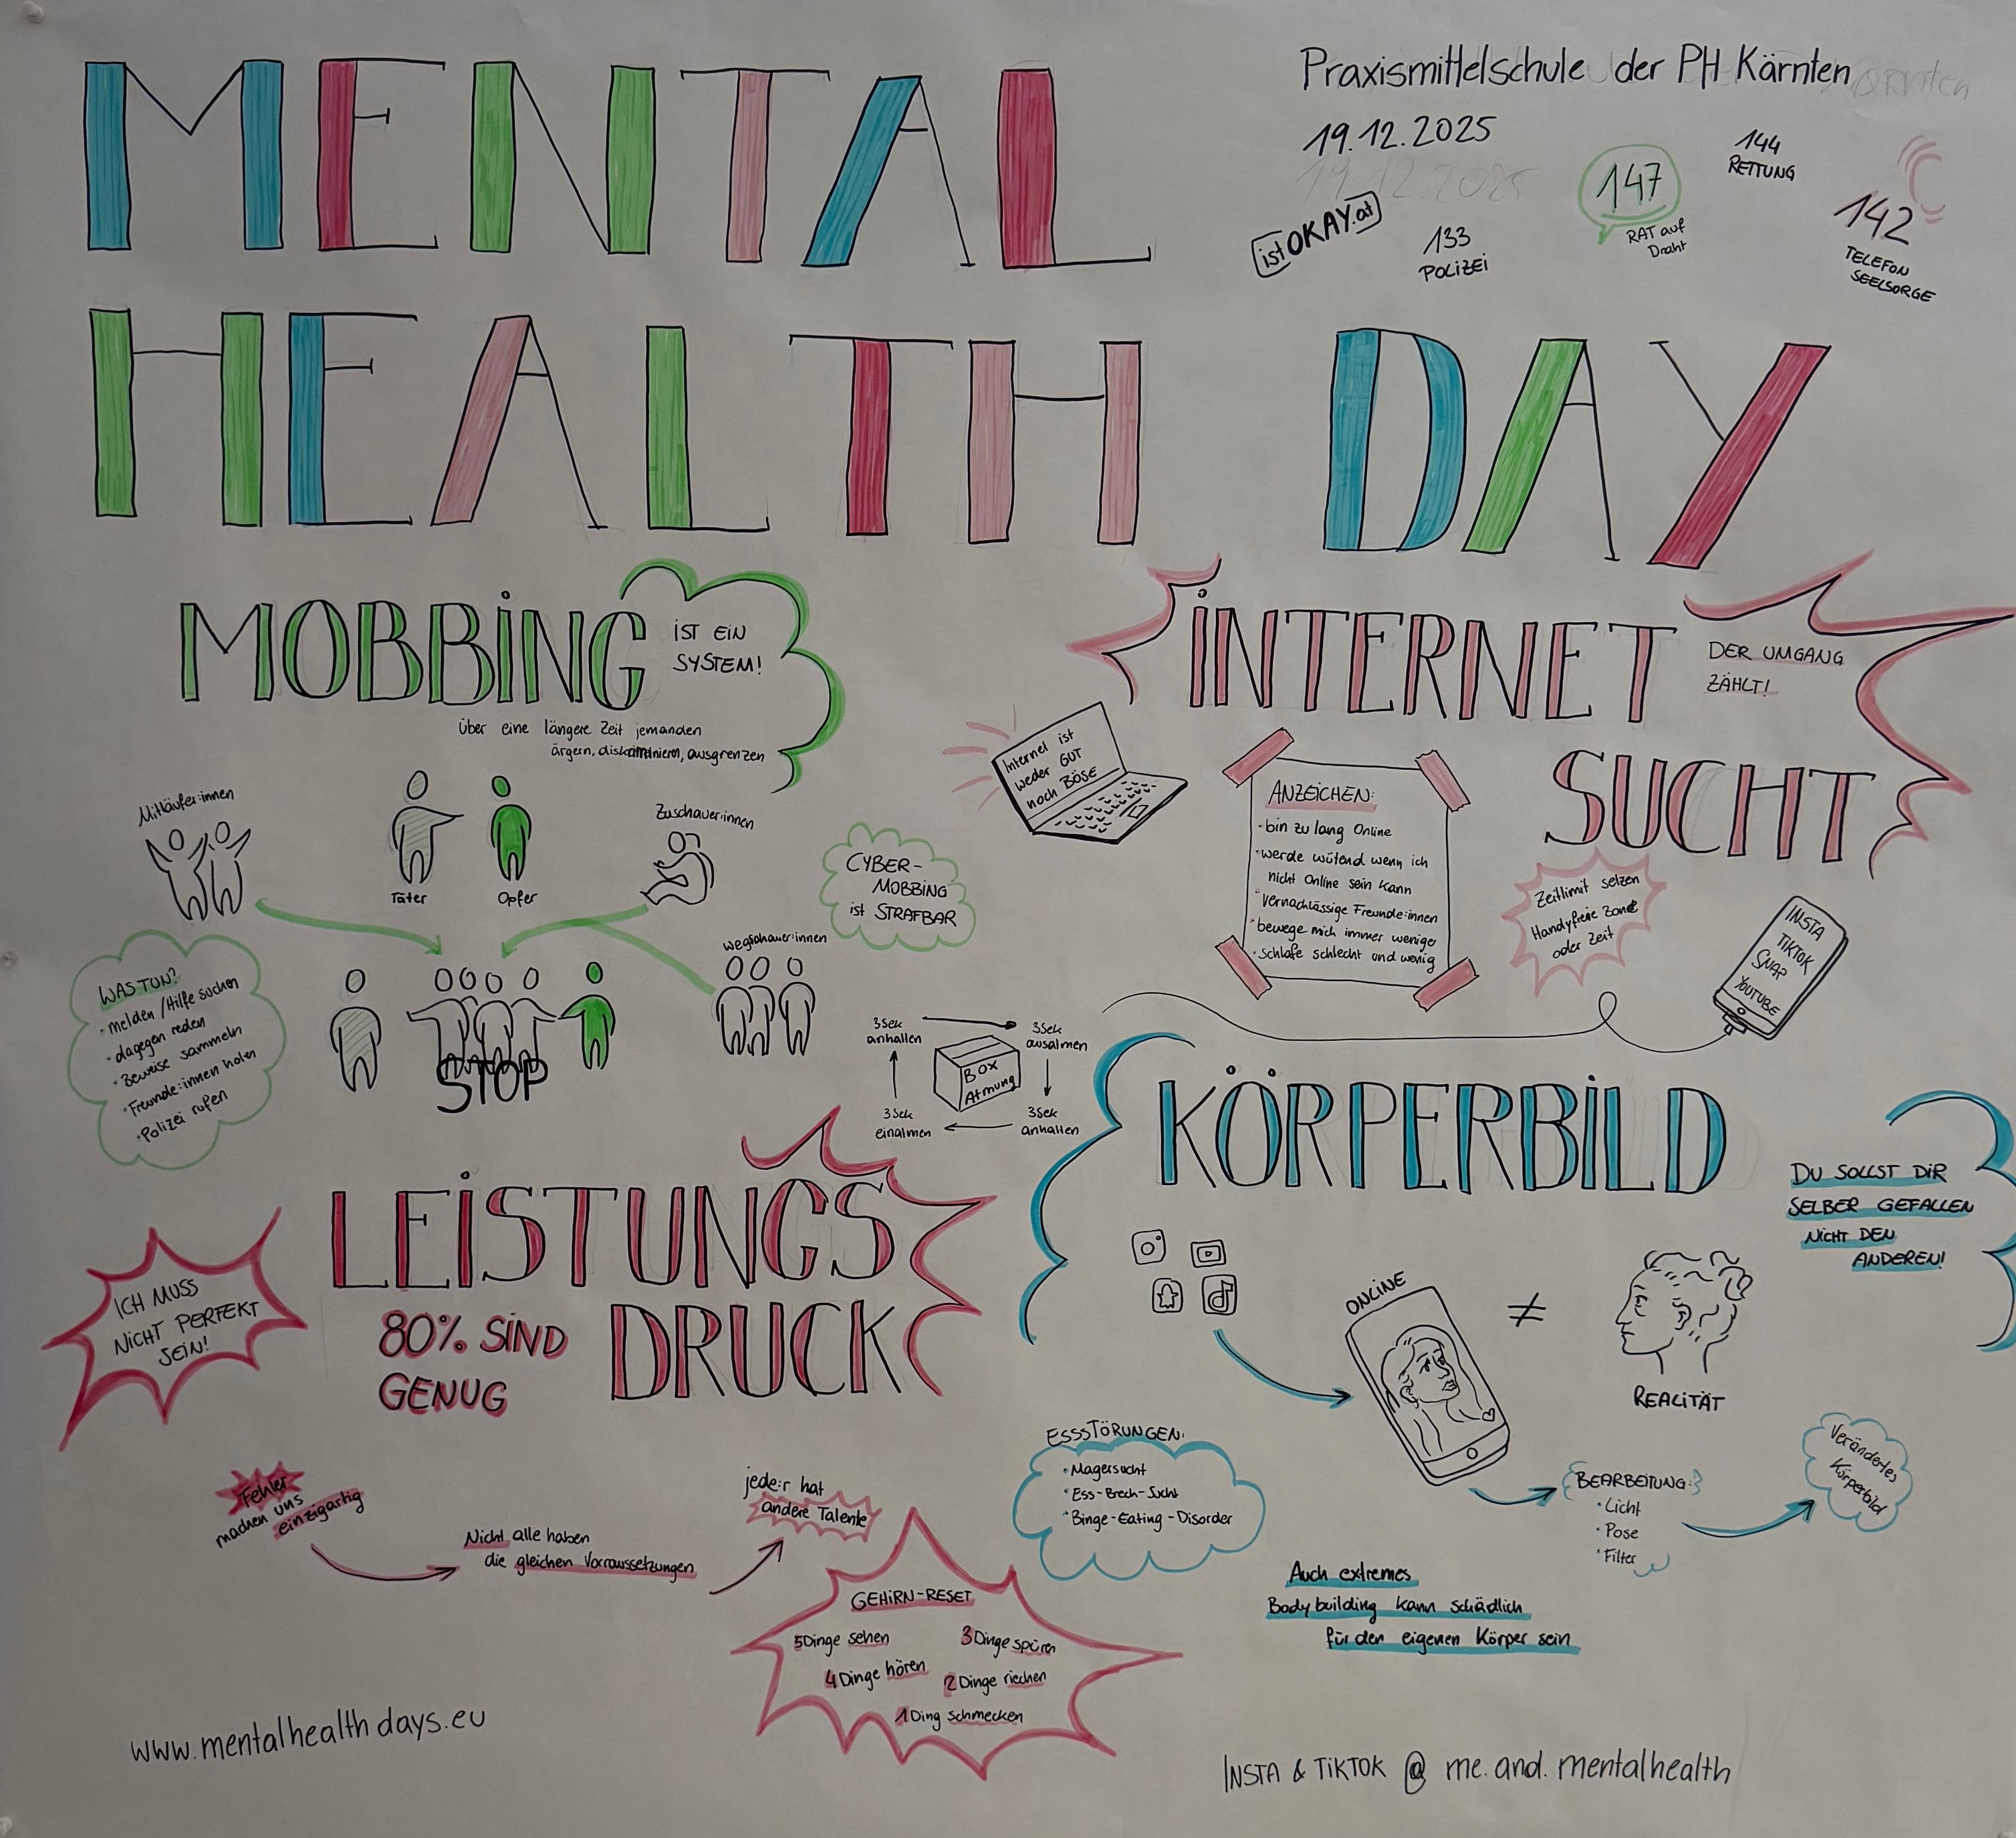 MENTAL
HEALTH DAY
Praxismittelschule der PH Kärnten
19.12.2025
istOKAY.at
133
POLIZEI
147
RAT auf
Draht
144
RETTUNG
142
TELEFON
SEELSORGE
MOBBING
IST EIN
SYSTEM!
über eine längere Zeit jemanden
ärgern, diskriminieren, ausgrenzen
Mitläufer:innen
Täter
Opfer
Zuschauer:innen
CYBER-
MOBBING
ist STRAFBAR
Wegschauer:innen
WAS TUN?
• melden / Hilfe suchen
• dagegen reden
• Beweise sammeln
• Freunde:innen holen
• Polizei rufen
STOP
3 Sek
anhalten
3 Sek
ausatmen
BOX
Atmung
3 Sek
einatmen
3 Sek
anhalten
INTERNET
SUCHT
DER UMGANG
ZÄHLT!
Internet ist
weder GUT
noch BÖSE
ANZEICHEN:
• bin zu lang Online
• werde wütend wenn ich
nicht Online sein kann
• vernachlässige Freunde:innen
• bewege mich immer weniger
• schlafe schlecht und wenig
Zeitlimit setzen
Handyfreie Zone
oder Zeit
INSTA
TIKTOK
SNAP
YOUTUBE
LEISTUNGS
DRUCK
80% SIND
GENUG
ICH MUSS
NICHT PERFEKT
SEIN!
Fehler
machen uns
einzigartig
Nicht alle haben
die gleichen Vorraussetzungen
jede:r hat
andere Talente
GEHIRN-RESET
5 Dinge sehen
4 Dinge hören
3 Dinge spüren
2 Dinge riechen
1 Ding schmecken
KÖRPERBILD
DU SOLLST DIR
SELBER GEFALLEN
NICHT DEN
ANDEREN!
ONLINE
≠
REALITÄT
ESSSTÖRUNGEN:
• Magersucht
• Ess-Brech-Sucht
• Binge-Eating-Disorder
BEARBEITUNG:
• Licht
• Pose
• Filter
Verändertes
Körperbild
Auch extremes
Bodybuilding kann schädlich
für den eigenen Körper sein
www.mentalhealthdays.eu
INSTA & TIKTOK @ me.and.mentalhealth